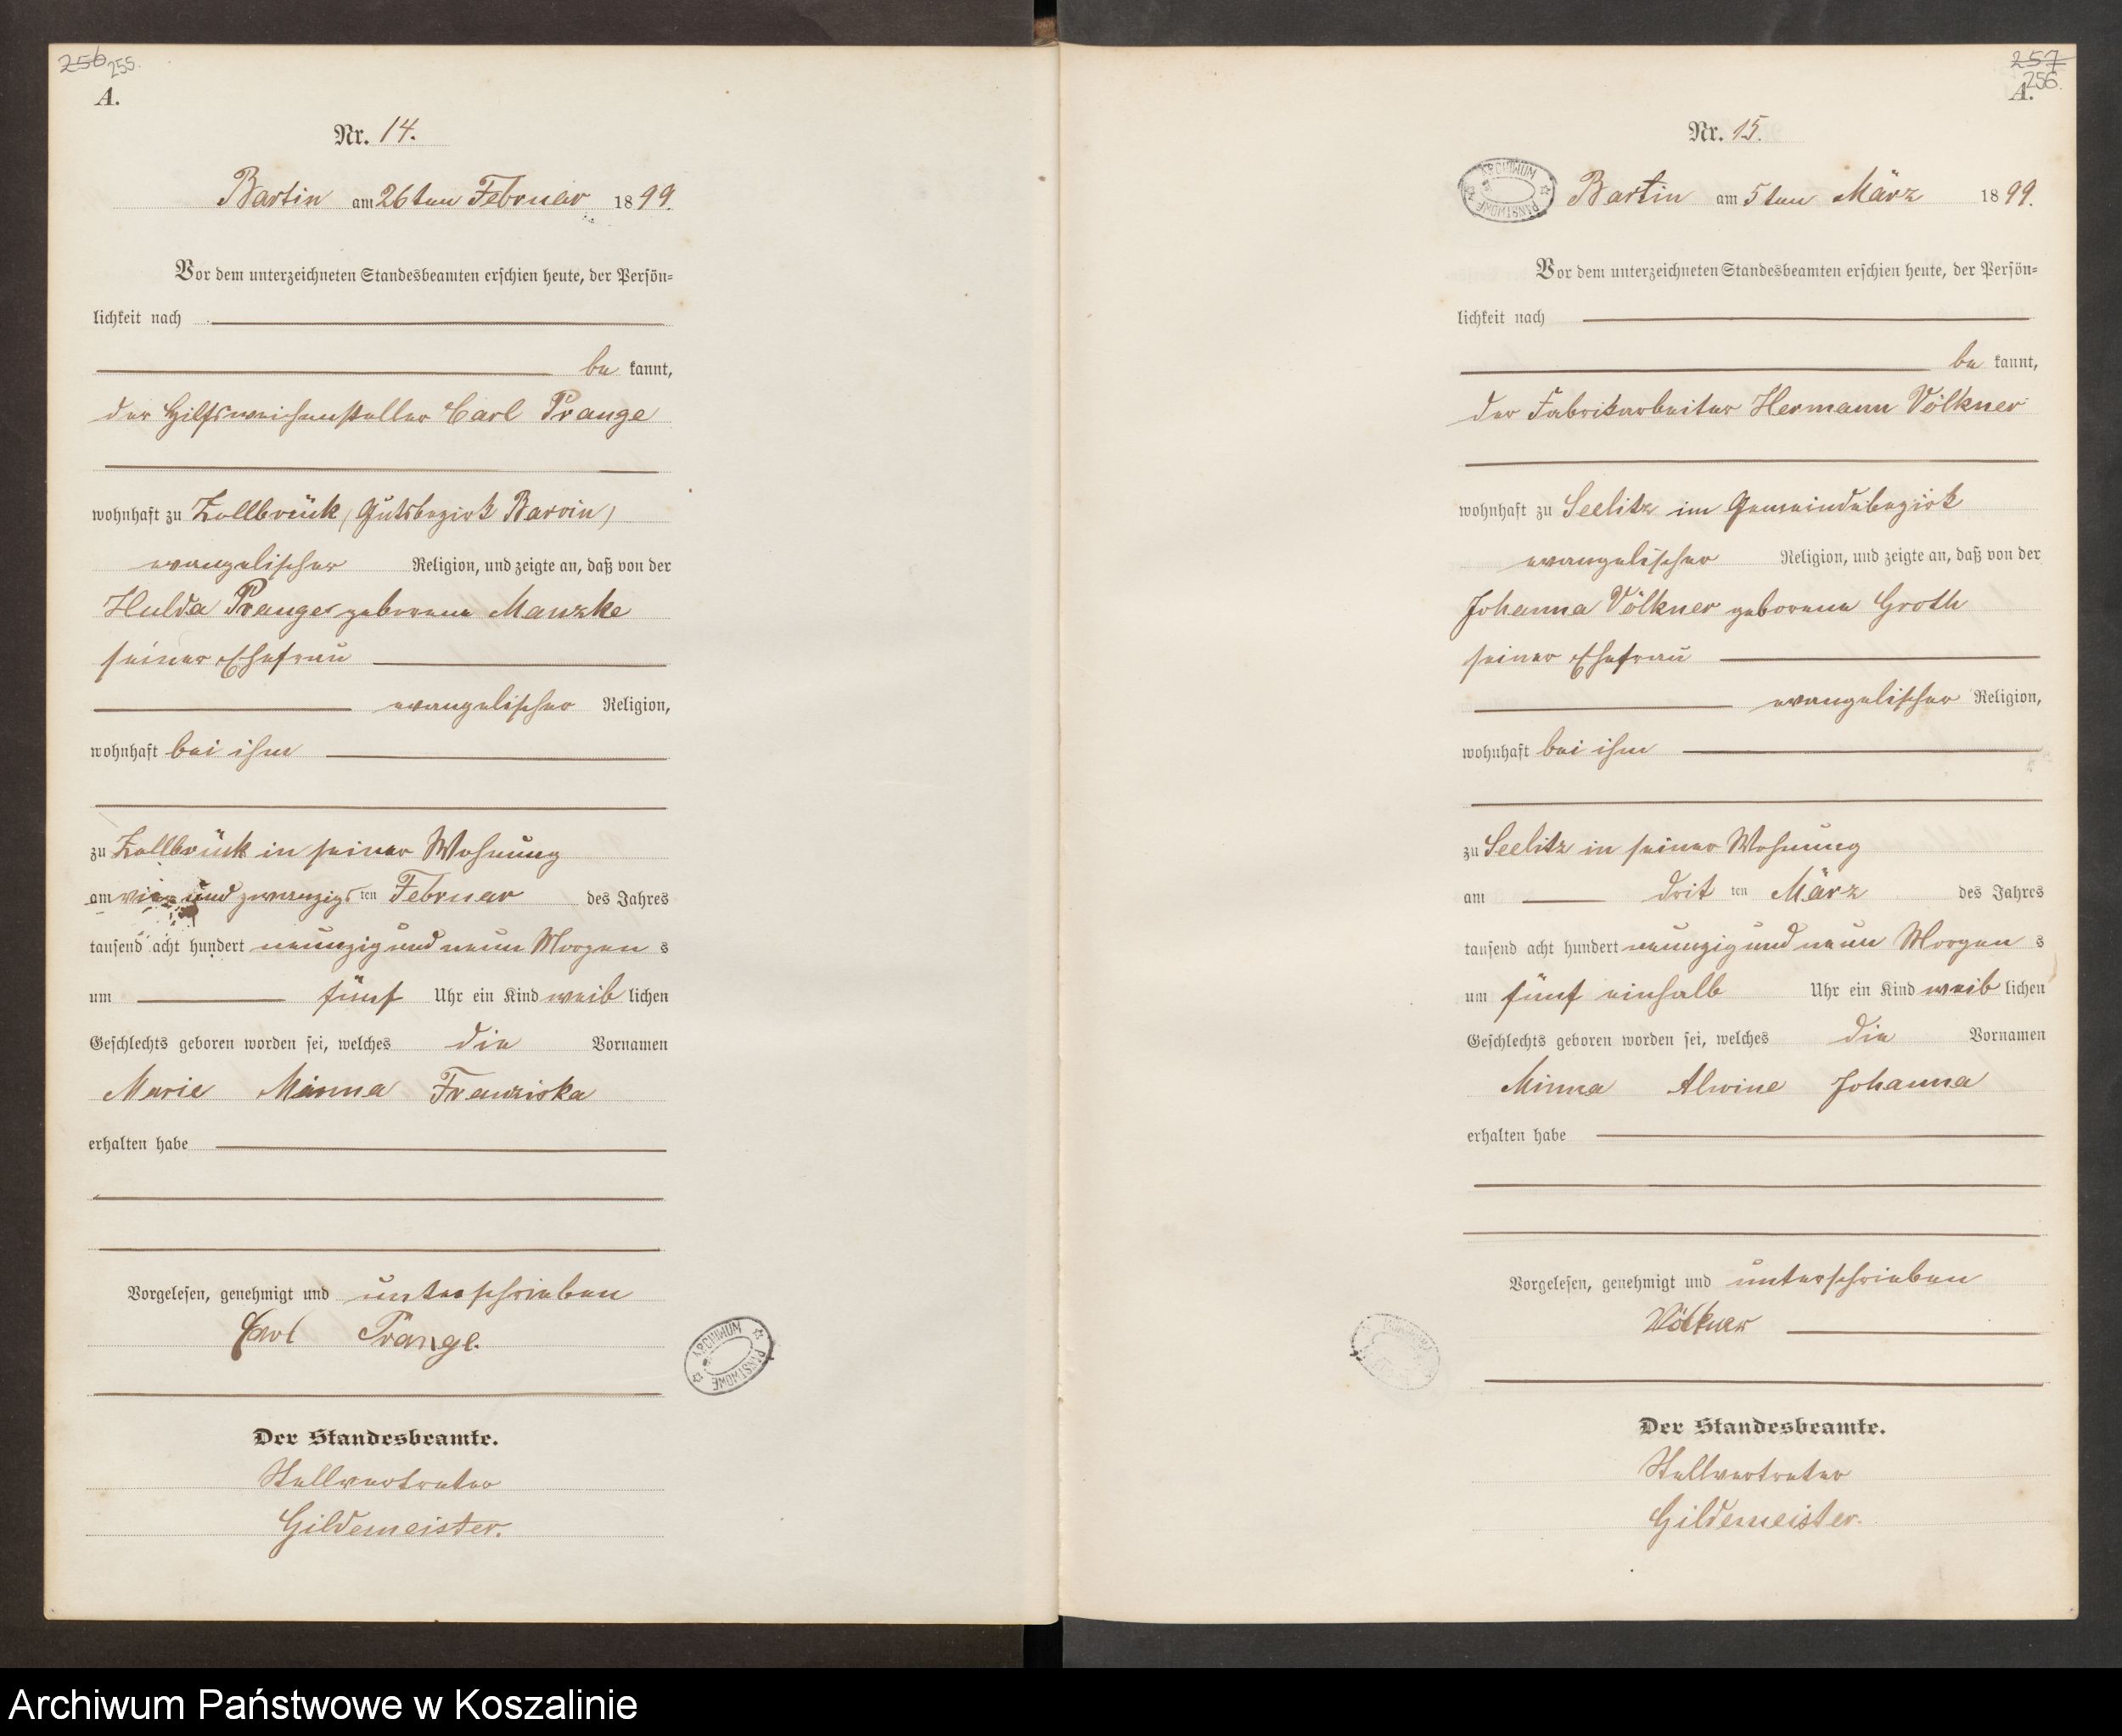 256 255.
A.
Nr. 14.
Bartin am 26ten Februar 1899.
Vor dem unterzeichneten Standesbeamten erschien heute, der Persön=
lichkeit nach
be kannt,
der Hilfsweichensteller Carl Prange
wohnhaft zu Zollbrück (Gutsbezirk Barvin)
evangelischer Religion, und zeigte an, daß von der
Hulda Prange geborene Manzke
seiner Ehefrau
evangelischer Religion,
wohnhaft bei ihm
zu Zollbrück in seiner Wohnung
am vier und zwanzigsten Februar des Jahres
tausend acht hundert neunzig und neun Morgens
um fünf Uhr ein Kind weiblichen
Geschlechts geboren worden sei, welches die Vornamen
Marie Minna Franziska
erhalten habe
Vorgelesen, genehmigt und unterschrieben
Carl Prange.
ARCHIWUM PAŃSTWOWE
Der Standesbeamte.
Stellvertreter
Gildemeister.
257
256.
A.
Nr. 15.
ARCHIWUM PAŃSTWOWE
Bartin am 5ten März 1899.
Vor dem unterzeichneten Standesbeamten erschien heute, der Persön=
lichkeit nach
be kannt,
der Fabrikarbeiter Hermann Völkner
wohnhaft zu Seelitz im Gemeindebezirk
evangelischer Religion, und zeigte an, daß von der
Johanna Völkner geborene Groth
seiner Ehefrau
evangelischer Religion,
wohnhaft bei ihm
zu Seelitz in seiner Wohnung
am dritten März des Jahres
tausend acht hundert neunzig und neun Morgens
um fünf einhalb Uhr ein Kind weiblichen
Geschlechts geboren worden sei, welches die Vornamen
Minna Alwine Johanna
erhalten habe
Vorgelesen, genehmigt und unterschrieben
Völkner
Der Standesbeamte.
Stellvertreter
Gildemeister.
Archiwum Państwowe w Koszalinie